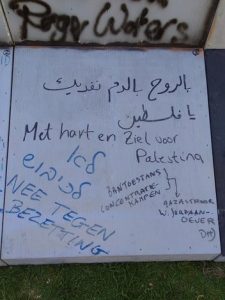 Roger Waters
بالروح بالدم نفديك
يا فلسطين
Met hart en Ziel voor
Palestina
לא
לכיבוש
NEE TEGEN
BEZETTING
BANTOESTANS
CONCENTRATIE-
KAMPEN
GAZASTROOK
W. JORDAAN-
OEVER